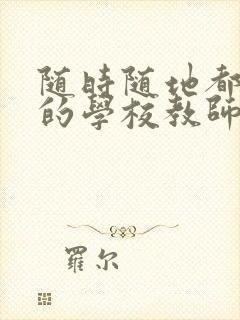 随时随地都
的學校教師
羅尔